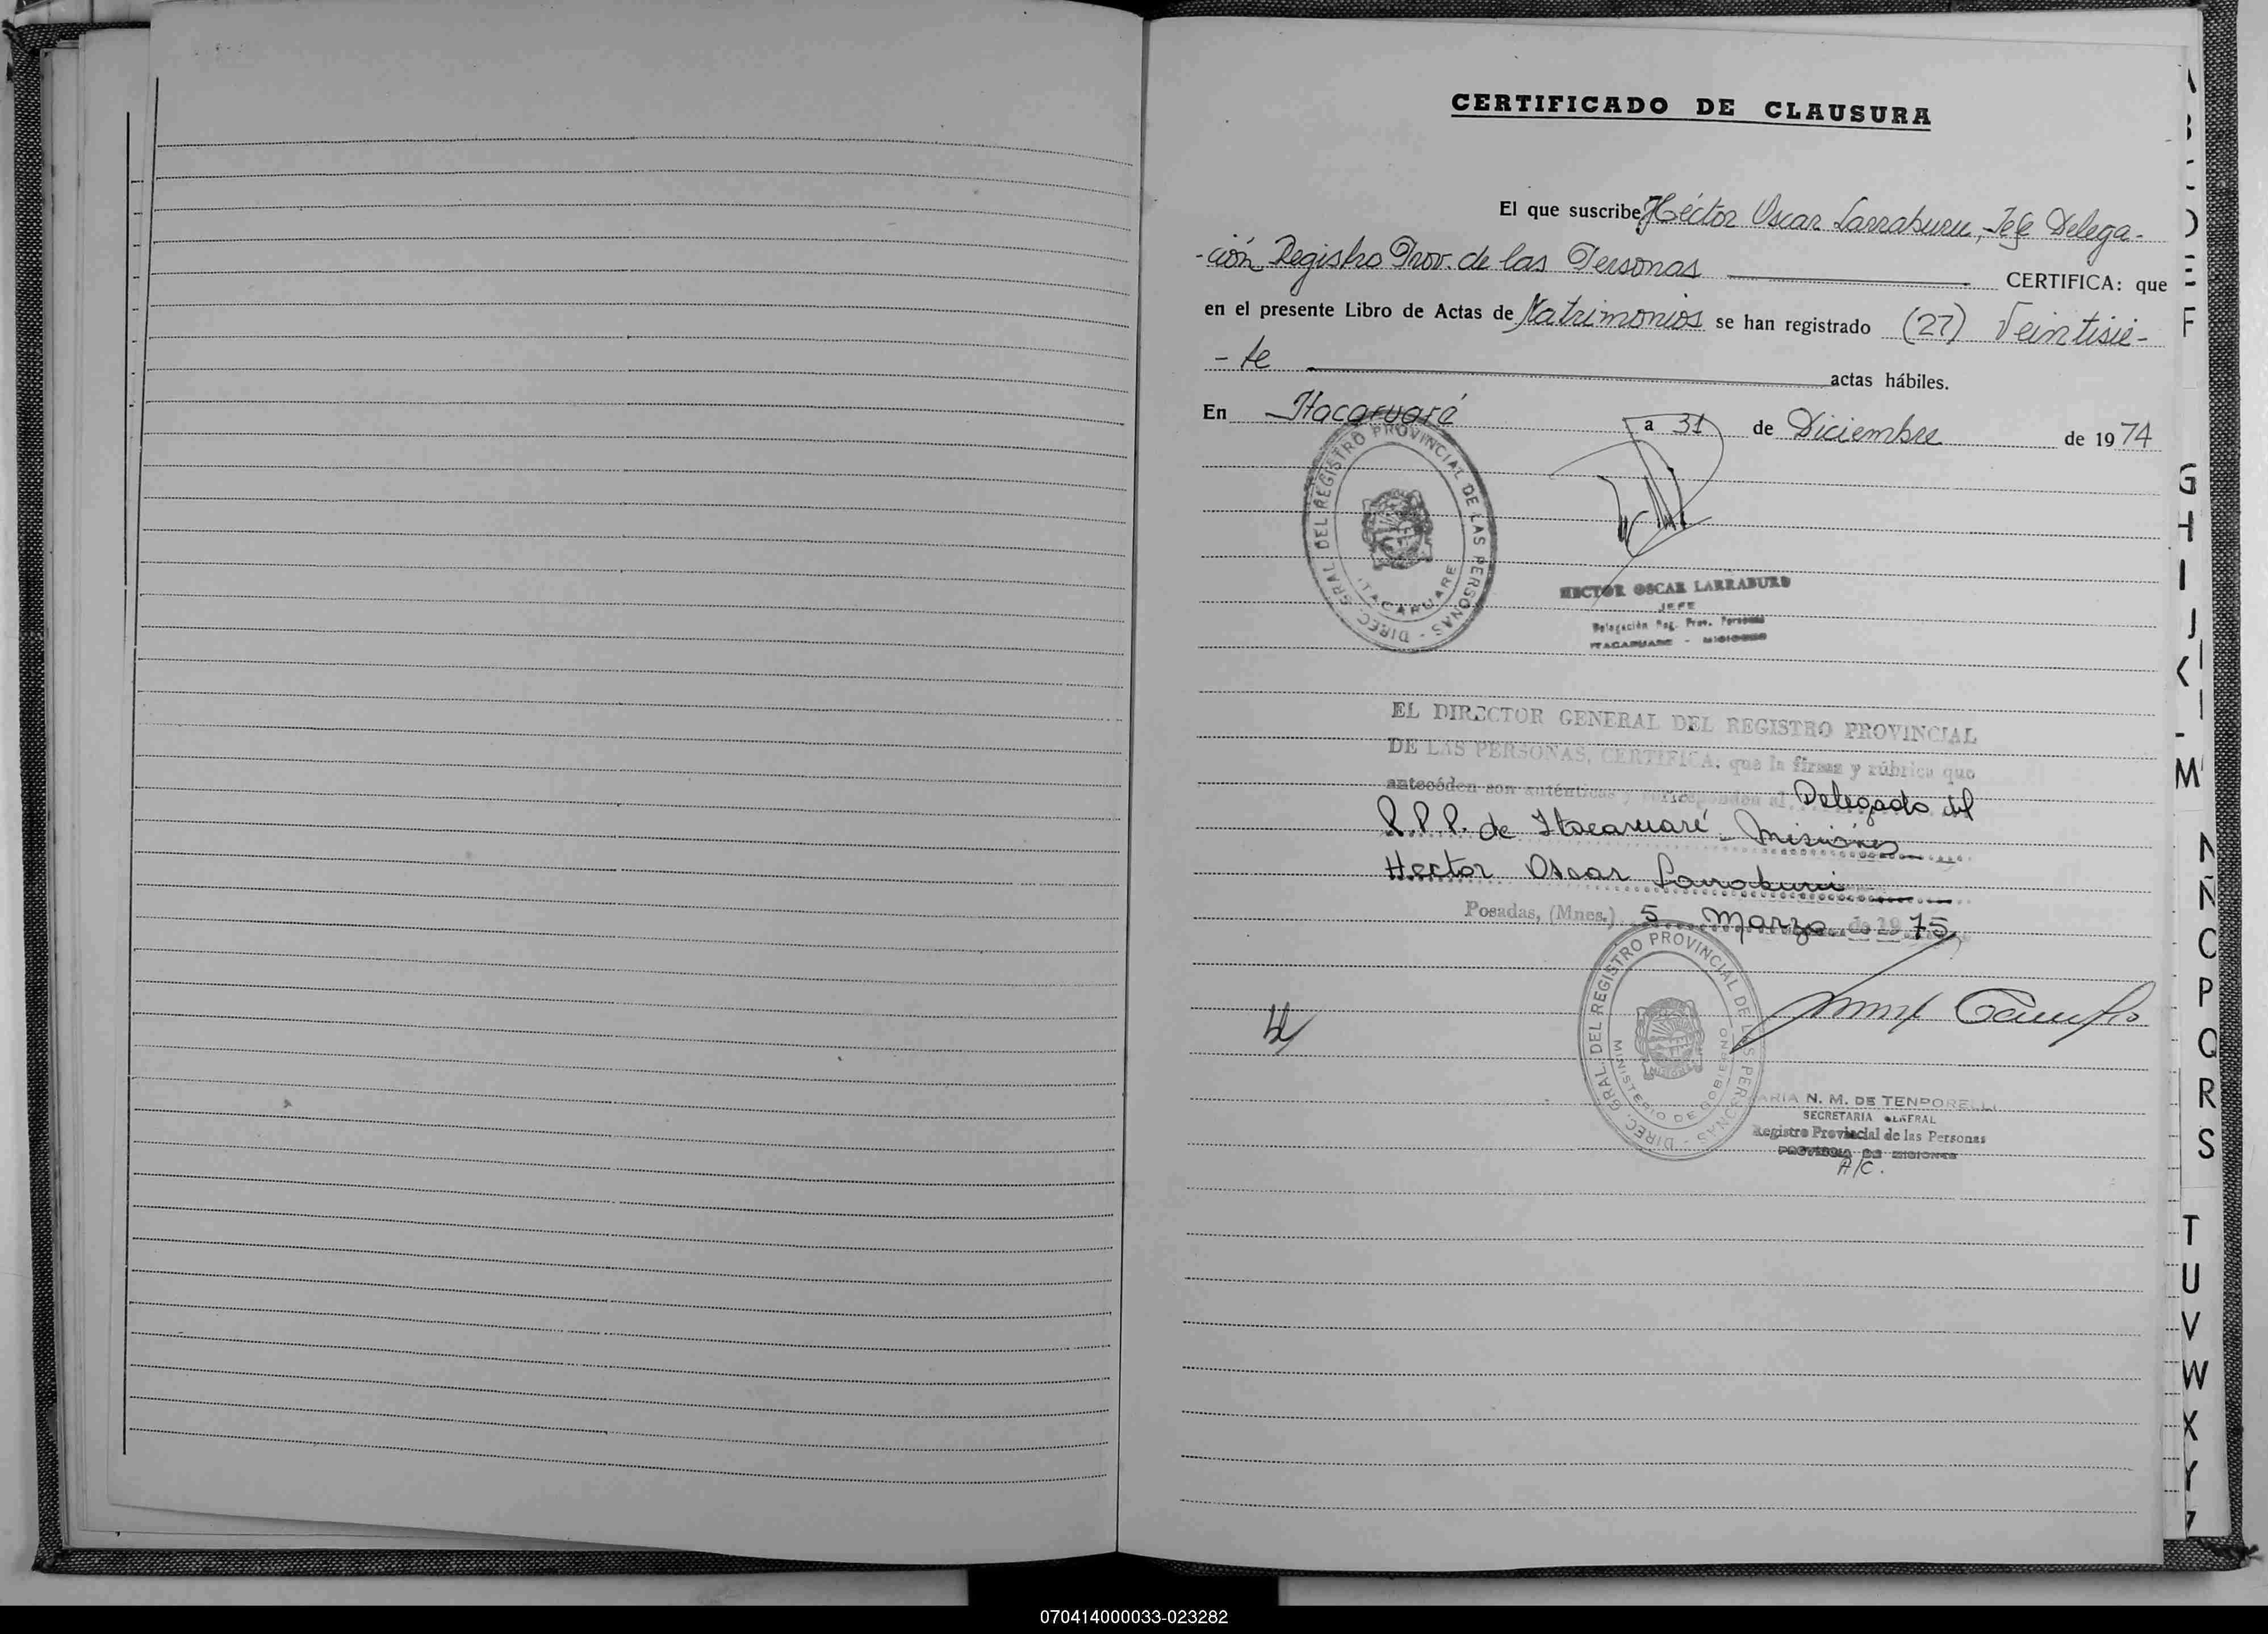 CERTIFICADO DE CLAUSURA
El que suscribe Héctor Oscar Larraburu, Jefe Delega-
-ción Registro Prov. de las Personas CERTIFICA: que
en el presente Libro de Actas de Matrimonios se han registrado (27) Veintisie-
-te actas hábiles.
En Itacaruaré a 31 de Diciembre de 1974
DIREC. GRAL. DEL REGISTRO PROVINCIAL DE LAS PERSONAS
ITACARUARE
HECTOR OSCAR LARRABURU
JEFE
Delegación Reg. Prov. Personas
ITACARUARE - MISIONES
EL DIRECTOR GENERAL DEL REGISTRO PROVINCIAL
DE LAS PERSONAS, CERTIFICA: que la firma y rúbrica que
antecéden son auténticas y corresponden al Delegado del
R.P.P. de Itacaruaré - Misiones
Hector Oscar Larraburu
Posadas, (Mnes.) 5 Marzo de 1975
DIREC. GRAL. DEL REGISTRO PROVINCIAL DE LAS PERSONAS
MINISTERIO DE GOBIERNO
MARIA N. M. DE TENPORELLI
SECRETARIA GENERAL
Registro Provincial de las Personas
PROVINCIA DE MISIONES
A/C.
D
E
F
G
I
J
M
N
Ñ
P
R
S
T
U
V
W
X
Y
070414000033-023282